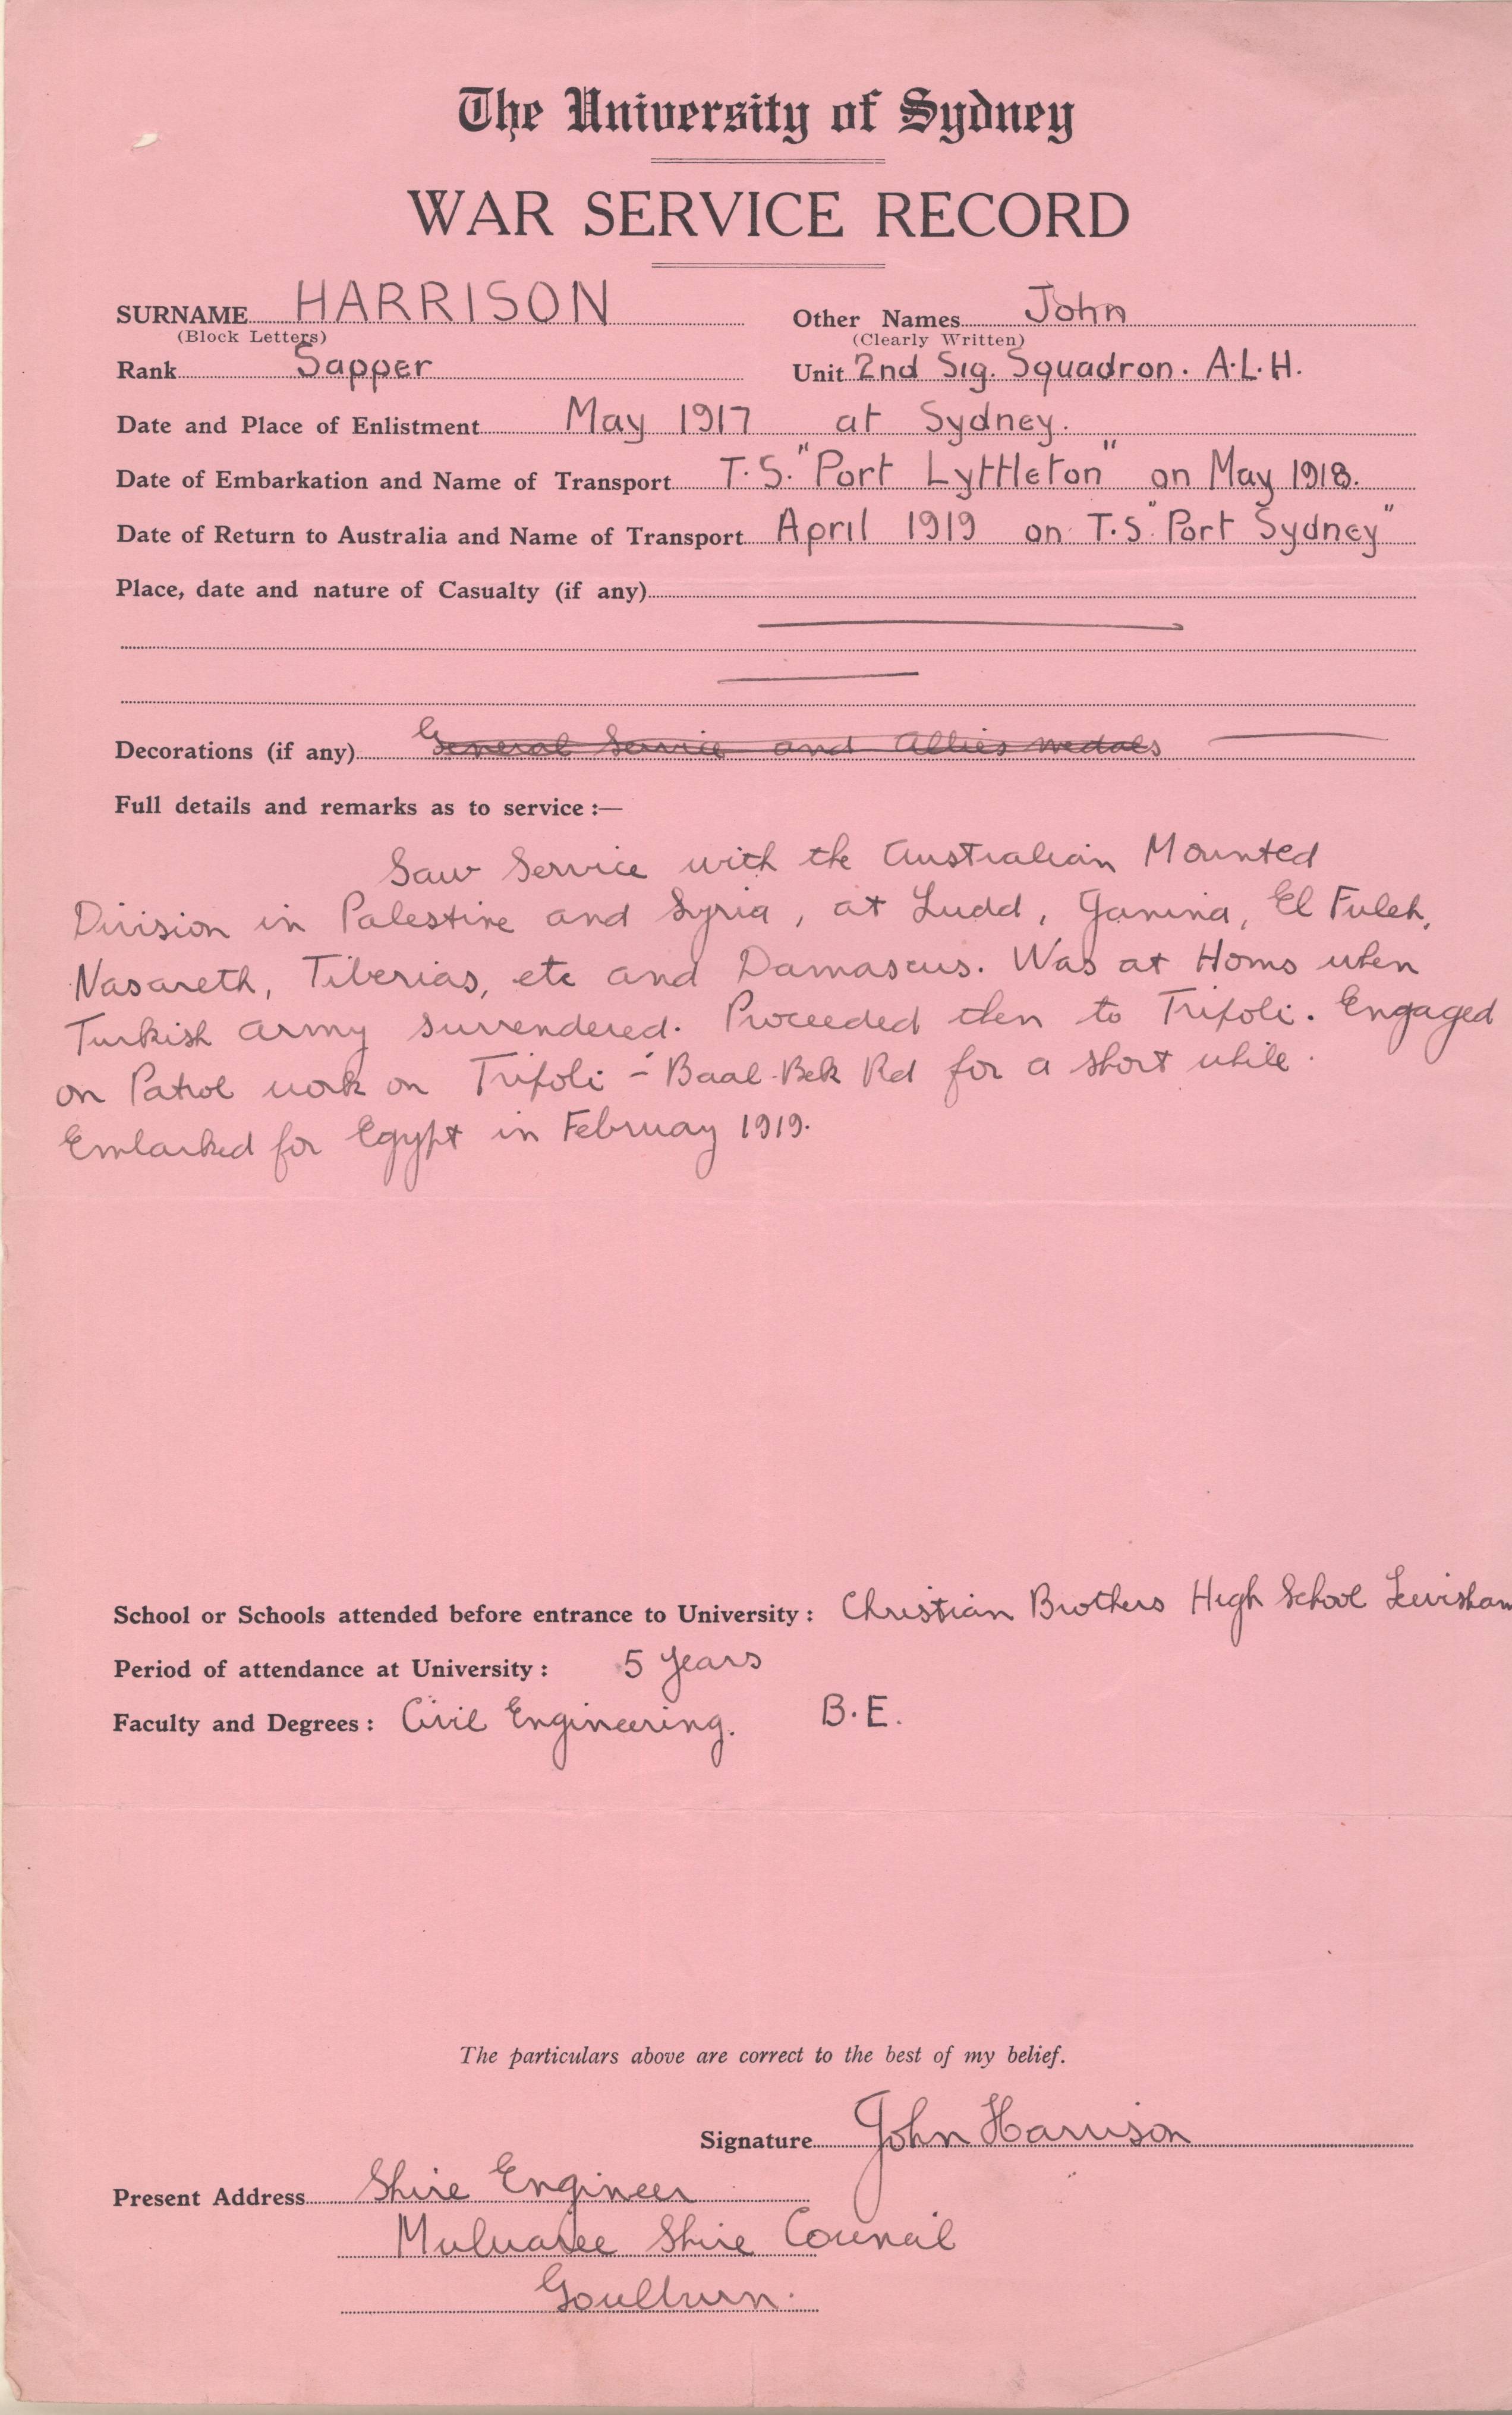 The University of Sydney
WAR SERVICE RECORD
SURNAME HARRISON Other Names John
(Block Letters) (Clearly Written)
Rank Sapper Unit 2nd Sig. Squadron. A.L.H.
Date and Place of Enlistment May 1917 at Sydney.
Date of Embarkation and Name of Transport T.S. "Port Lyttleton" on May 1918.
Date of Return to Australia and Name of Transport April 1919 on T.S. "Port Sydney"
Place, date and nature of Casualty (if any)
Decorations (if any) General Service and Allies medals
Full details and remarks as to service :—
Saw Service with the Australian Mounted
Division in Palestine and Syria, at Ludd, Janina, El Fuleh,
Nasareth, Tiberias, etc and Damascus. Was at Homs when
Turkish army surrendered. Proceeded then to Tripoli. Engaged
on Patrol work on Tripoli - Baal-Bek Rd for a short while.
Embarked for Egypt in February 1919.
School or Schools attended before entrance to University : Christian Brothers High School Lewisham
Period of attendance at University : 5 years
Faculty and Degrees : Civil Engineering. B.E.
The particulars above are correct to the best of my belief.
Signature John Harrison
Present Address Shire Engineer
Mulwaree Shire Council
Goulburn.